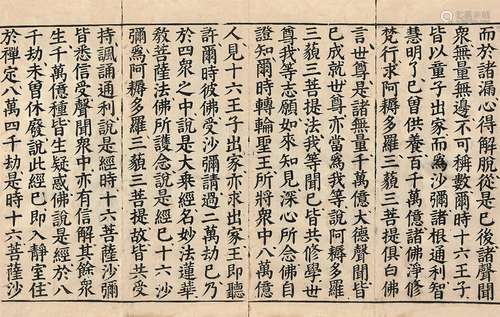 而於諸漏心得解脫從是已後諸聲聞
衆無量無邊不可稱數爾時十六王子
皆以童子出家而爲沙彌諸根通利智
慧明了已曾供養百千萬億諸佛淨修
梵行求阿耨多羅三藐三菩提俱白佛
言世尊是諸無量千萬億大德聲聞皆
已成就世尊亦當爲我等說阿耨多羅
三藐三菩提法我等聞已皆共修學世
尊我等志願如來知見深心所念佛自
證知爾時轉輪聖王所將衆中八萬億
人見十六王子出家亦求出家王即聽
許爾時彼佛受沙彌請過二萬劫已乃
於四衆之中說是大乘經名妙法蓮華
教菩薩法佛所護念說是經已十六沙
彌爲阿耨多羅三藐三菩提故皆共受
持諷誦通利說是經時十六菩薩沙彌
皆悉信受聲聞衆中亦有信解其餘衆
生千萬億種皆生疑惑佛說是經於八
千劫未曾休廢說此經已即入靜室住
於禪定八萬四千劫是時十六菩薩沙